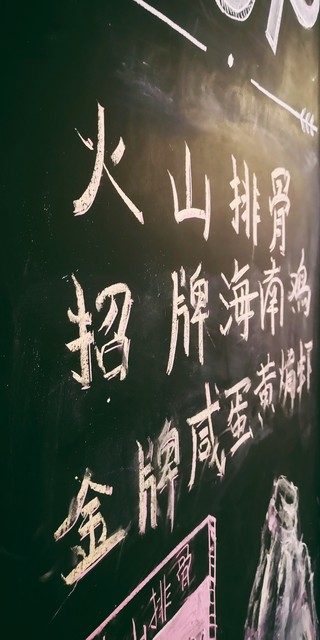 火山排骨
招牌海南鸡
金牌咸蛋黄焗虾
火山排骨